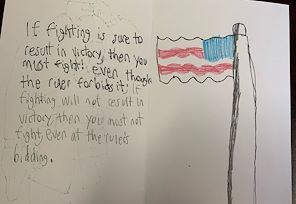 If fighting is sure to
result in victory, then you
must fight! even though
the ruler forbids it; If
fighting will not result in
victory, then you must not
fight, even at the rulers
bidding.